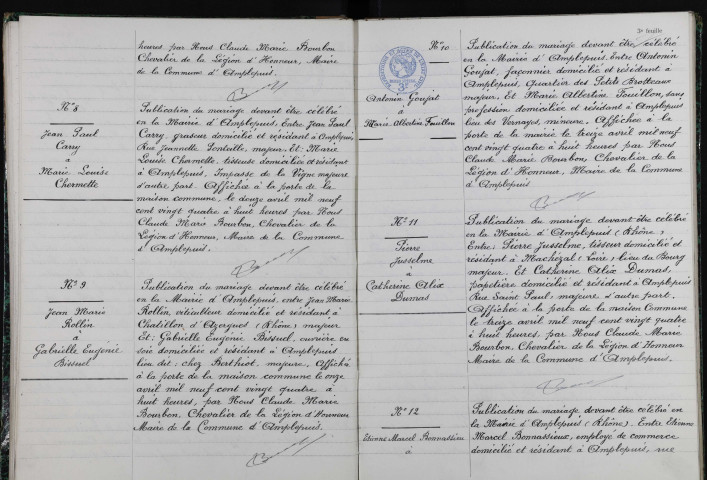 heures par Nous Claude Marie Bourbon
Chevalier de la Légion d'Honneur, Maire
de la Commune d'Amplepuis.
N° 8
Jean Paul
Carry
à
Marie Louise
Chermette
Publication du mariage devant être célébré
en la Mairie d'Amplepuis. Entre Jean Paul
Carry, graveur domicilié et résidant à Amplepuis,
Rue Jeannette Pontaille, majeur. Et: Marie
Louise Chermette, tisseuse domiciliée et résidant
à Amplepuis, Impasse de la Vigne majeure
d'autre part. Affichée à la porte de la
maison commune, le douze avril mil neuf
cent vingt quatre à huit heures par Nous
Claude Marie Bourbon, Chevalier de la
Légion d'Honneur, Maire de la Commune
d'Amplepuis.
N° 9
Jean Marie
Rollin
à
Gabrielle Eugénie
Bissuel
Publication du mariage devant être célébré
en la Mairie d'Amplepuis, entre Jean Marie
Rollin, viticulteur domicilié et résidant à
Chatillon d'Azergues (Rhône) majeur
Et: Gabrielle Eugénie Bissuel, ouvrière en
soie domiciliée et résidant à Amplepuis
lieu dit: chez Berthiot, majeure, Affiché
à la porte de la maison commune le onze
avril mil neuf cent vingt quatre à
huit heures, par Nous Claude Marie
Bourbon, Chevalier de la Légion d'Honneur
Maire de la Commune d'Amplepuis.
3e feuille
N° 10
Antonin Goujat
à
Marie Albertine Fouillon
Publication du mariage devant être célébré
en la Mairie d'Amplepuis. Entre Antonin
Goujat, façonnier domicilié et résidant à
Amplepuis, Quartier des Petits Brotteaux
majeur. Et Marie Albertine Fouillon, sans
profession domiciliée et résidant à Amplepuis
lieu des Vernayes, mineure. Affichée à la
porte de la mairie le treize avril mil neuf
cent vingt quatre à huit heures par Nous
Claude Marie Bourbon, Chevalier de la
Légion d'Honneur, Maire de la Commune
d'Amplepuis
N° 11
Pierre
Jusselme
à
Catherine Alix
Dumas
Publication du mariage devant être célébré
en la Mairie d'Amplepuis (Rhône)
Entre: Pierre Jusselme, tisseur domicilié et
résidant à Machézal (Loire) lieu du Bourg
majeur. Et Catherine Alix Dumas,
papetière domiciliée et résidant à Amplepuis
Rue Saint Paul, majeure d'autre part.
Affichée à la porte de la maison Commune
le treize avril mil neuf cent vingt quatre
à huit heures, par Nous Claude Marie
Bourbon, Chevalier de la Légion d'Honneur
Maire de la Commune d'Amplepuis.
N° 12
Etienne Marcel Bonnassieux
à
Publication du mariage devant être célébré en
la Mairie d'Amplepuis (Rhône). Entre Etienne
Marcel Bonnassieux, employé de commerce
domicilié et résidant à Amplepuis, rue